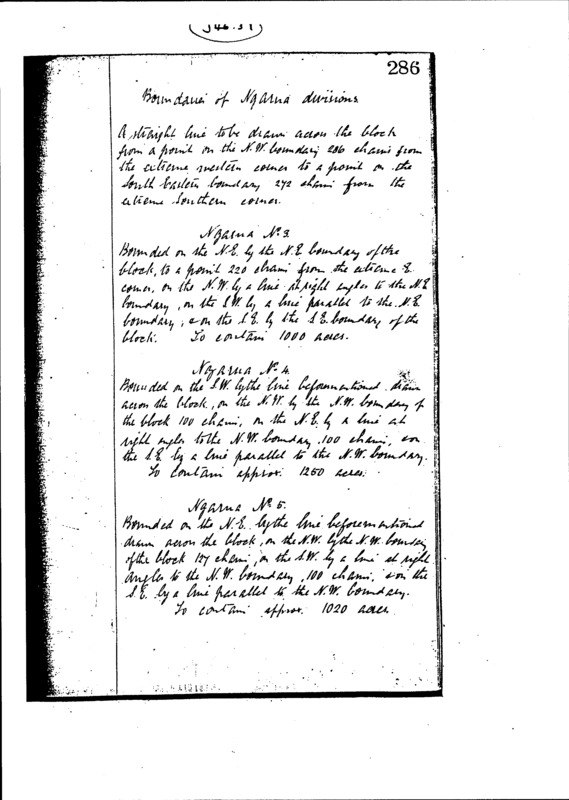 J46.31
286
Boundaries of Ngarua divisions
A straight line to be drawn across the block
from a point on the N.W. boundary 206 chains from
the extreme western corner to a point on the
South Eastern boundary 272 chains from the
extreme Southern corner.
Ngarua No. 3.
Bounded on the N.E. by the N.E. boundary of the
block, to a point 220 chains from the extreme E.
corner, on the N.W. by a line at right angles to the N.E.
boundary, on the S.W. by a line parallel to the N.E.
boundary, & on the S.E. by the S.E. boundary of the
block. To contain 1000 acres.
Ngarua No. 4.
Bounded on the S.W. by the line beforementioned drawn
across the block, on the N.W. by the N.W. boundary of
the block 100 chains, on the N.E. by a line at
right angles to the N.W. boundary 100 chains, & on
the S.E. by a line parallel to the N.W. boundary.
To contain approx. 1250 acres.
Ngarua No. 5.
Bounded on the N.E. by the line beforementioned
drawn across the block, on the N.W. by the N.W. boundary
of the block 127 chains, on the S.W. by a line at right
angles to the N.W. boundary, 100 chains, & on the
S.E. by a line parallel to the N.W. boundary.
To contain approx. 1020 acres